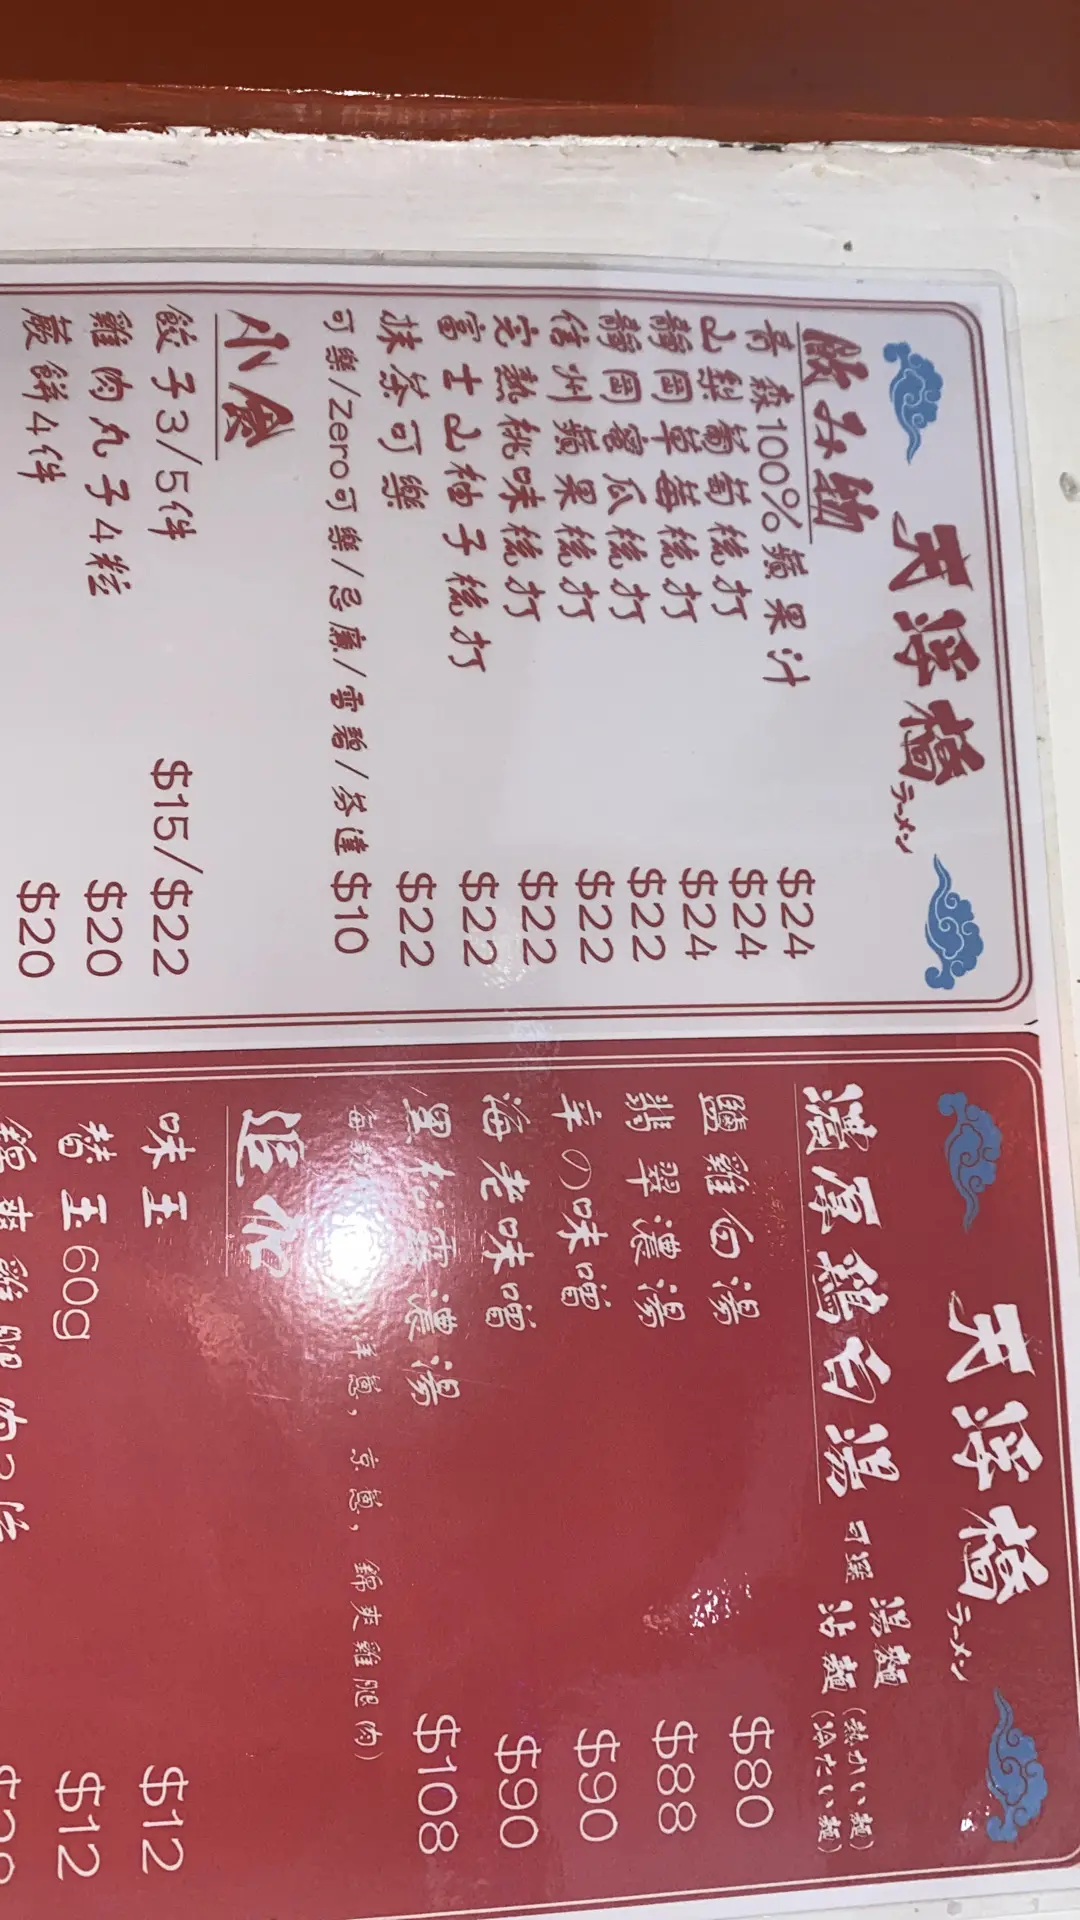 天浮橋
ラーメン
飲み物
青森100%蘋果汁 $24
山梨葡萄梳打 $24
靜岡草莓梳打 $24
靜岡蜜瓜梳打 $22
信州蘋果梳打 $22
完熟桃味梳打 $22
富士山柚子梳打 $22
抹茶可樂 $22
可樂/Zero可樂/忌廉/雪碧/芬達 $10
小食
餃子3/5件 $15/$22
雞肉丸子4粒 $20
蕨餅4件 $20
天浮橋
ラーメン
濃厚鶏白湯 可選 湯麵(熱かい麵)
沾麵(冷たい麵)
鹽雞白湯 $80
翡翠濃湯 $88
辛の味噌 $90
海老味噌 $90
黑松露濃湯 $108
洋蔥, 京蔥, 錦爽雞腿肉)
追加
味玉 $12
替玉60g $12
錦爽雞腿肉2件